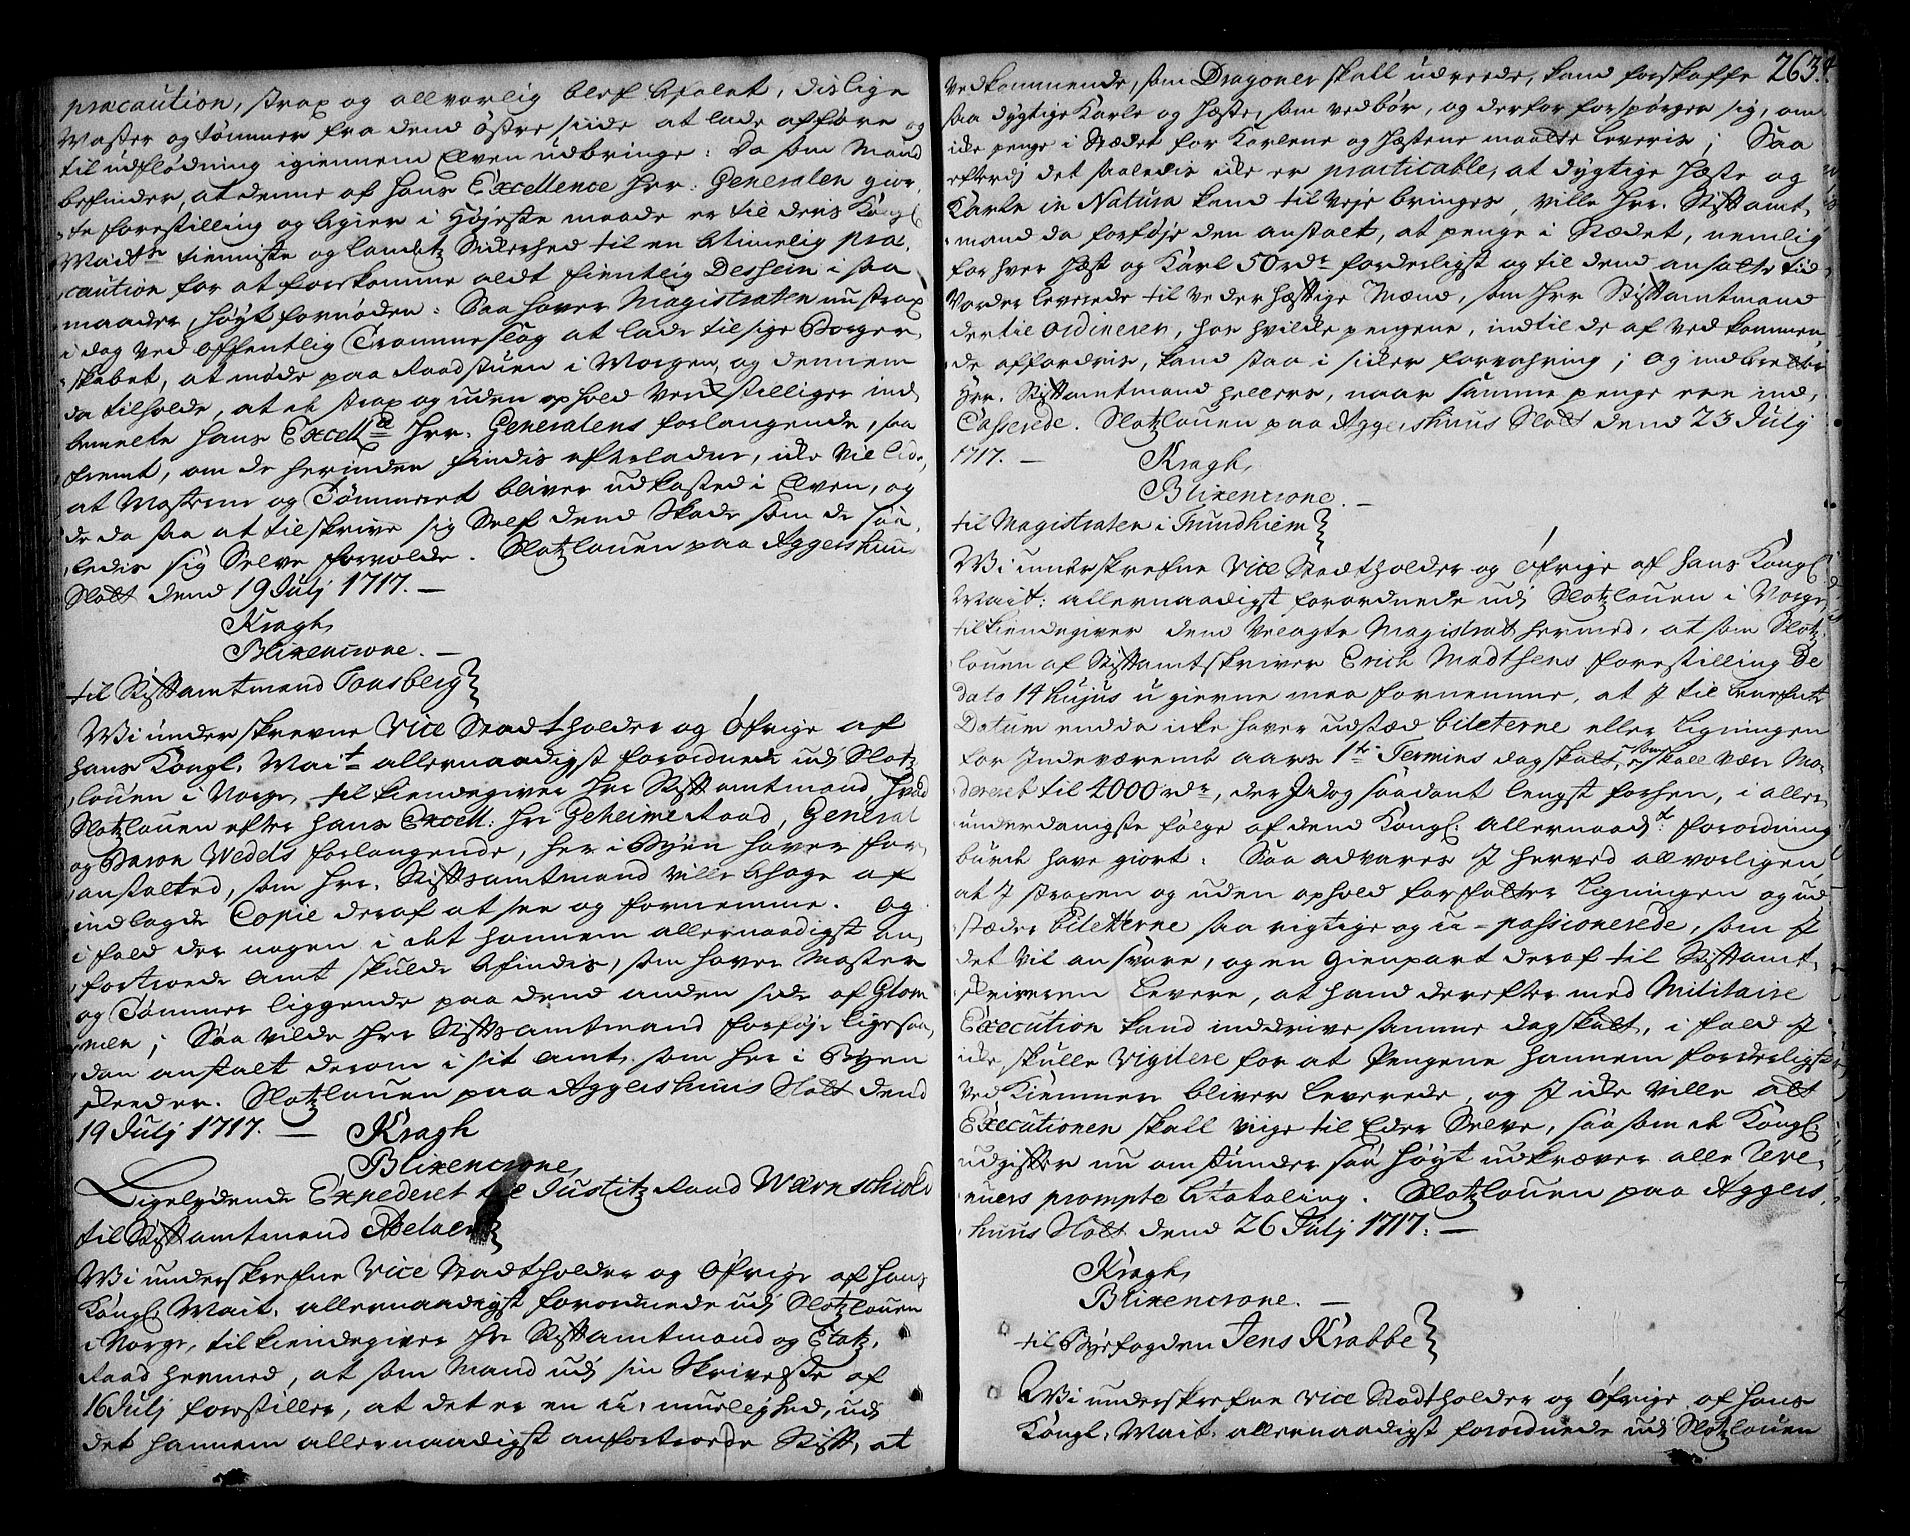 præcaution, strax og allvorlig blef befalet, dislige
Master og Tømmer fra dend østre siide at lade afføre og
til udflødning igiennem Elven udbringe: Da som Mand
befinder, at denne af hans Excellence Herr: Generalen gior,
te forestilling og begier i Højeste maade er til deris Kongl:
Maitts tienniste og landetz Sickerhed til en betimelig præ,
caution for at forekomme aldt fientlig Dessein i saa
maader, høyt fornøden: Saa haver Magistraten nu strax
i dag ved offentlig Trommeslag at lade tilsige Borger,
skabet, at møde paa Raadstuen i Morgen, og dennem
da tilholde, at de strax og uden ophold Verckstilliger ind
bemelte hans Excellce Herr. Generalens forlangende, saa
fremt, om de herinden findis efterladne, icke vil lide,
at Masterne og Tømmeret bliver udkasted i Elven, og
de da saa at tilskrive sig Self dend Skade som de saa,
ledis sig Selve forvolde. Slotzlouen paa Aggershuus
Slott dend 19 Julj 1717. —
Kragh,
Blixencrone. —
til Stiftamtmand Tonsberg
Wi underskrevne Vice Stadtholder og Øfrige af
hans Kongl. Mait: allernaadigst forordnede udj Slotz,
louen i Norge, tilkiendegiver Hr Stiftamtmand, hvad
Slotzlouen efter hans Excell: Hr Geheime Raad, General
og Baron Wedels forlangende, her i Byen haver for,
anstalted, som Hr. Stiftamtmand ville behage af
indlagde Copie deraf at see og fornemme. Og
i fald der nogen i det hannem allernaadigst an,
fortroede Amt skulde befindis, som haver Master
og Tømmer liggende paa dend anden side af Glom
men; Saa vilde Hr Stiftsamtmand forføje ligesaa,
dan anstalt derom i sit Amt, som her i Byen
skeeder. Slotzlouen paa Aggershuus Slott dend
19 Julj 1717. — Kragh
Blixencrone,
Ligelydende Expederet til Justitz Raad Wærnschiold
til Stiftamtmand Adelaer
Wi underskrefne Vice Stadtholder og Øfrige af hans
Kongl. Mait. allernaadigst forordnede udj Slotzlouen
i Norge, tilkiendegiver Hr Stiftamtmand og Etatz,
Raad hermed, at som Mand udj sin Skrivelse af
16 Julj forestiller, at det er en u-muelighed, udj
det hannem allernaadigst anfortroede Stift, at
263.
vedkommende, som Dragoner skall udreede, kand forskaffe
saa dygtige Karle og Hæste, som vedbør, og derfor forspørger sig, om
icke penge i Stædet for Karlene og Hæstene maatte leveris; Saa
efterdj det saaledis icke er practicable, at dygtige Hæste og
Karle in Natura kand til veje bringes, ville Hr. Stiftamt,
mand da forføje den anstalt, at penge i Stædet, nemlig
for hver Hæst og Karl 50 rdr forderligst og til dend ansatte tid
Vorder leverede til vederhæftige Mænd, som Hr Stiftamtmand
dertil ordinerer, hos hvilcke pengene, indtil de af Vedkommen,
de affordris, kand staa i sicker forvahring; og indberetter
Hr. Stiftamtmand hellers, naar samme penge ere ind,
Casserede. Slotzlouen paa Aggershuus Slott dend 23 Julj
1717. — Kragh,
Blixencrone. —
til Magistraten i Trundhiem
Wi underskrefne Vice Stadtholder og Øfrige af hans Kongl.
Mait: allernaadigst forordnede udj Slotzlouen i Norge,
tilkiendegiver dend Velagte Magistrat hermed, at som Slotz,
louen af Stiftamtskriver Erich Madthsens forestilling De
dato 14 hujus u gierne maa fornemme, at I til benefnte
Datum endda icke haver udstæd bileterne eller Ligningen
for Indeværende aars 1te Termins dagskatt, som skall være Mo,
dereret til 4000 rdr, der I dog saadant lengst forhen, i aller,
underdanigste følge af dend Kongl: Allernaadst: forordning
burde have giort: Saa advares I herved allvorligen
at I straxen og uden ophold forfatter Ligningen og ud
stæder biletterne saa rigtige og u-passionerede, som I
det vil ansvare, og en Gienpart deraf til Stiftamt,
skriveren levere, at hand derefter med Militaire
Execution kand inddrive samme dagskatt, i fald I
icke skulle vigilere for at Pengene hannem forderligst
ved Kiemneren bliver leverede, og I icke ville at
Executionen skall viige til Eder Selve, saasom de Kongl:
udgifter nu omstunder saa høyt udkræver alle Reve,
nuers prompte betaling. Slotzlouen paa Aggers,
huus Slott dend 26 Julj 1717. —
Kragh,
Blixencrone. —
til Byefogden Jens Krabbe
Wi underskrefne Vice Stadtholder og Øfrige af hans
Kongl. Mait. allernaadigst forordnede udj Slotzlouen